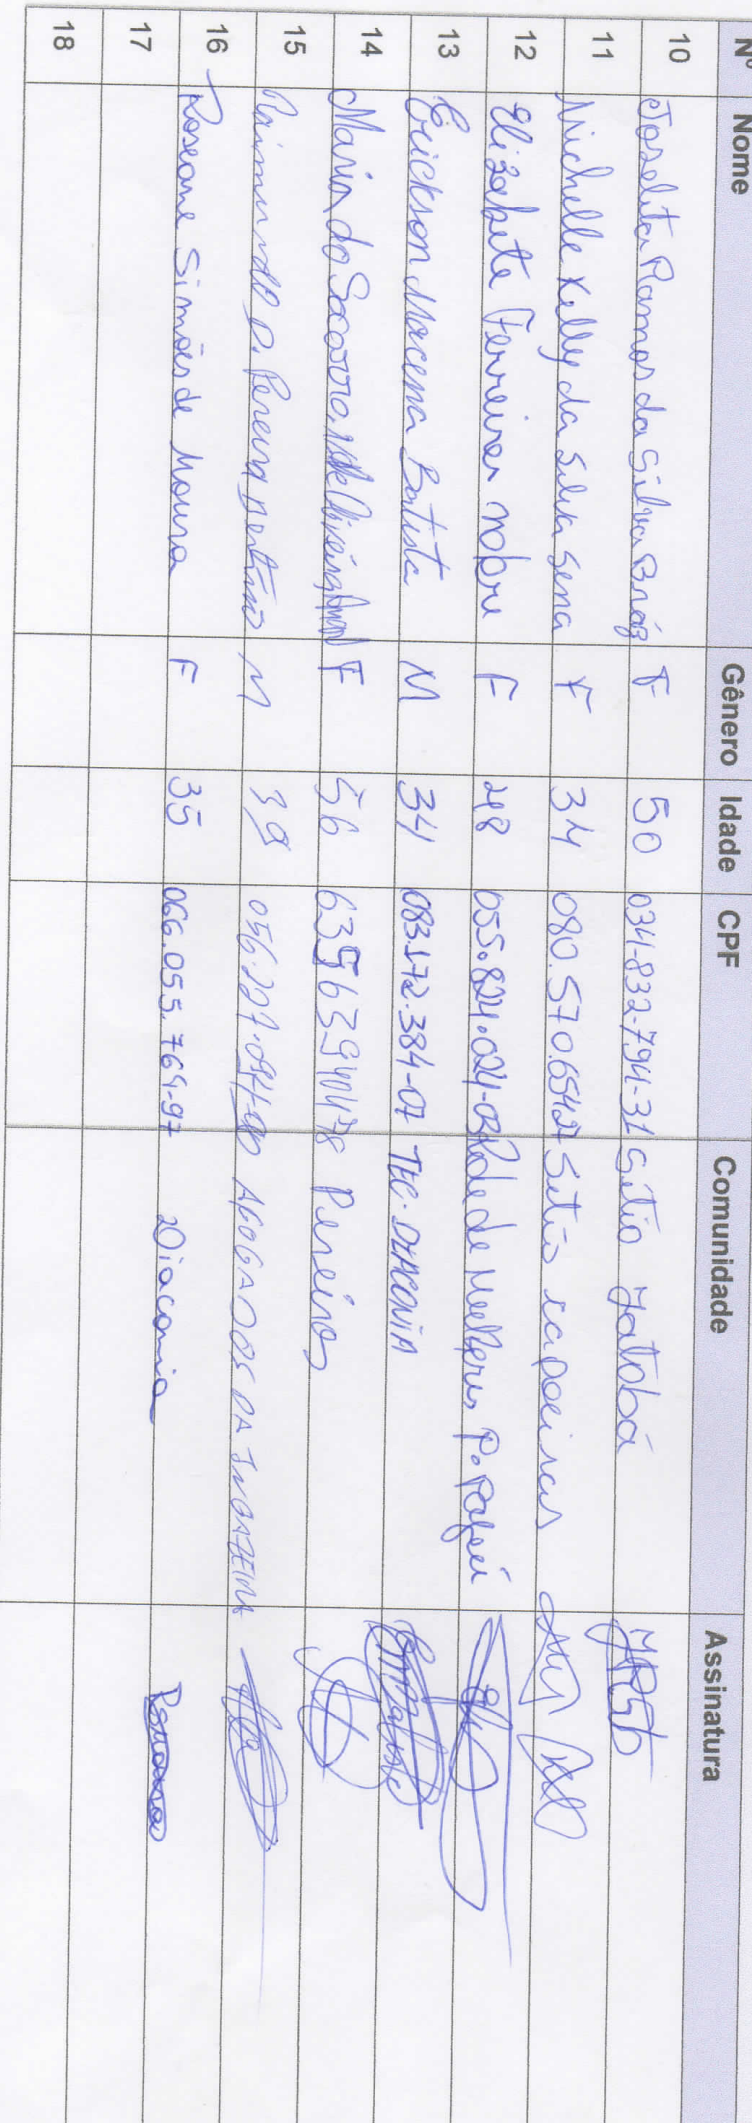 Nº Nome Gênero Idade CPF Comunidade Assinatura
10 Joselita Ramos da Silva Bráz F 50 034-832-794-31 Sítio Jatobá
11 Michelle Kelly da Silva Sena F 34 080.570.654-27 Sitio capoeiras
12 Elizabete Ferreira nobre F 48 055.824.024-03 Rede de Mulheres P. Pajeú
13 Erickson Macena Batista M 34 083.172.384-07 TEC. DIACONIA
14 Maria do Socorro F 56 Pereiros
15 Pereira M 39 AFOGADOS DA INGAZEIRA
16 Roseane Simões de Moura F 35 066.055.764-97 Diaconia
17
18